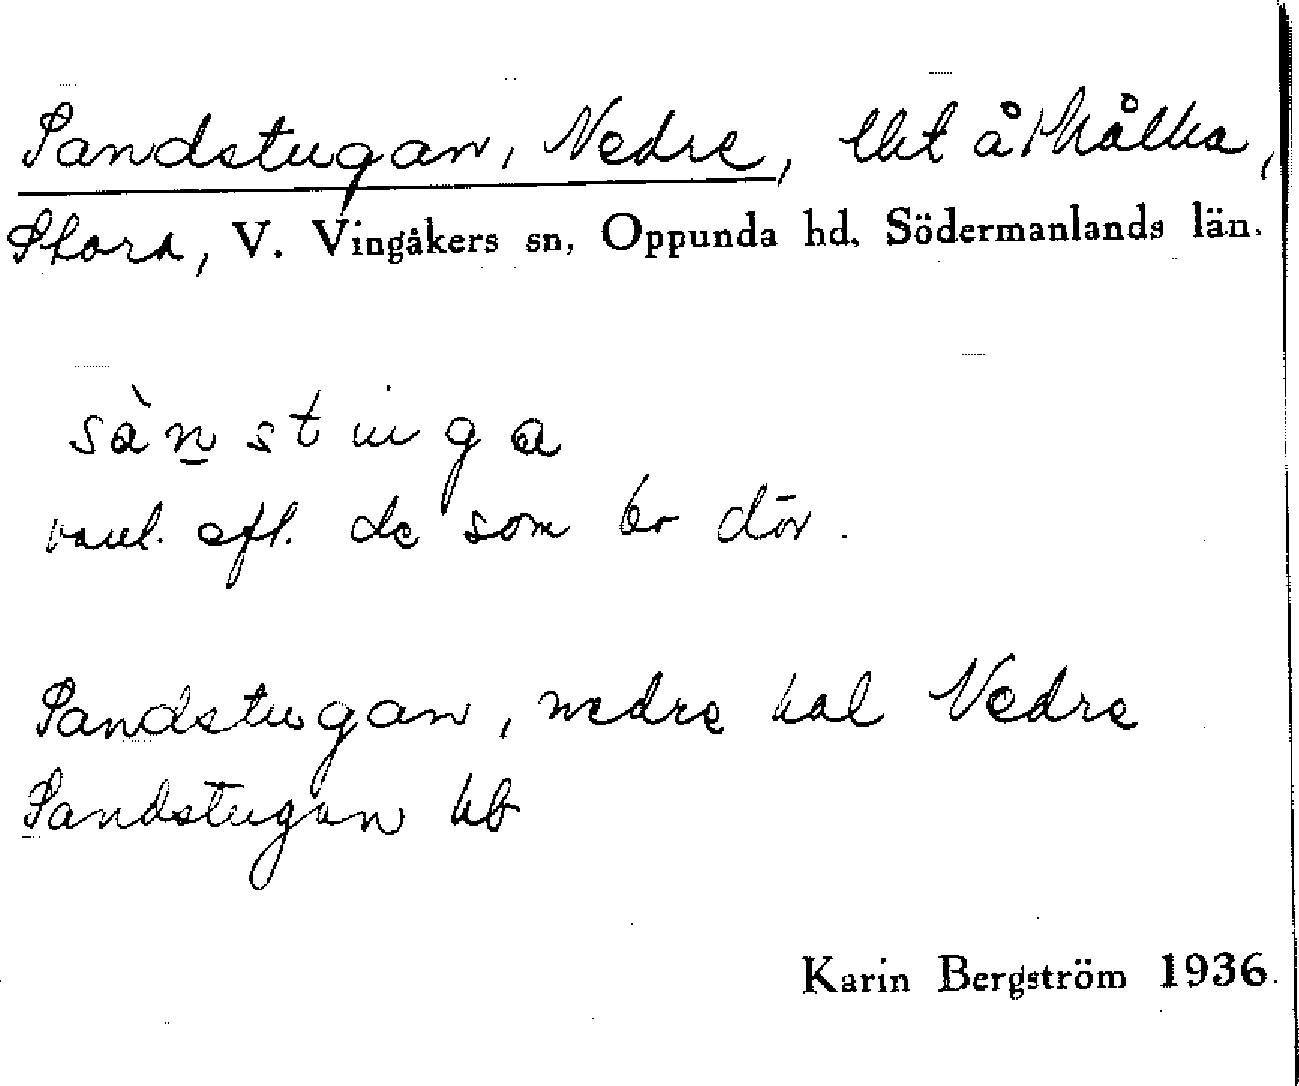 Sandstugan, Nedre, lht å Kålka,
Stora, V. Vingåkers sn, Oppunda hd, Södermanlands län.
sànstuga
vanl. efl. de som bo där.
Sandstugan, nedre kal Nedre
Sandstugan kb
Karin Bergström 1936.